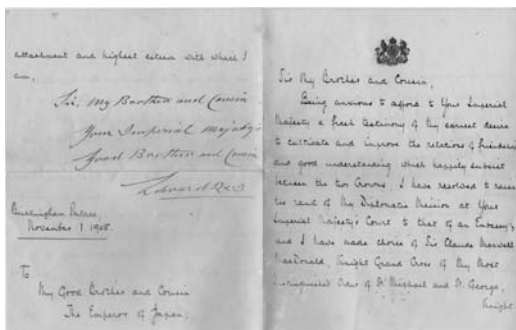 attachment and highest esteem with which I
am,
Sir, My Brother and Cousin
Your Imperial Majesty's
Good Brother and Cousin
Edward R & I
Buckingham Palace,
November 1 1905.
To
My Good Brother and Cousin
The Emperor of Japan.
Sir My Brother and Cousin,
Being anxious to afford to Your Imperial
Majesty a fresh testimony of My earnest desire
to cultivate and improve the relations of friendship
and good understanding which happily subsist
between the two Crowns, I have resolved to raise
the rank of My Diplomatic Mission at Your
Imperial Majesty's Court to that of an Embassy,
and I have made choice of Sir Claude Maxwell
MacDonald, Knight Grand Cross of My Most
Distinguished Order of St. Michael and St. George,
Knight